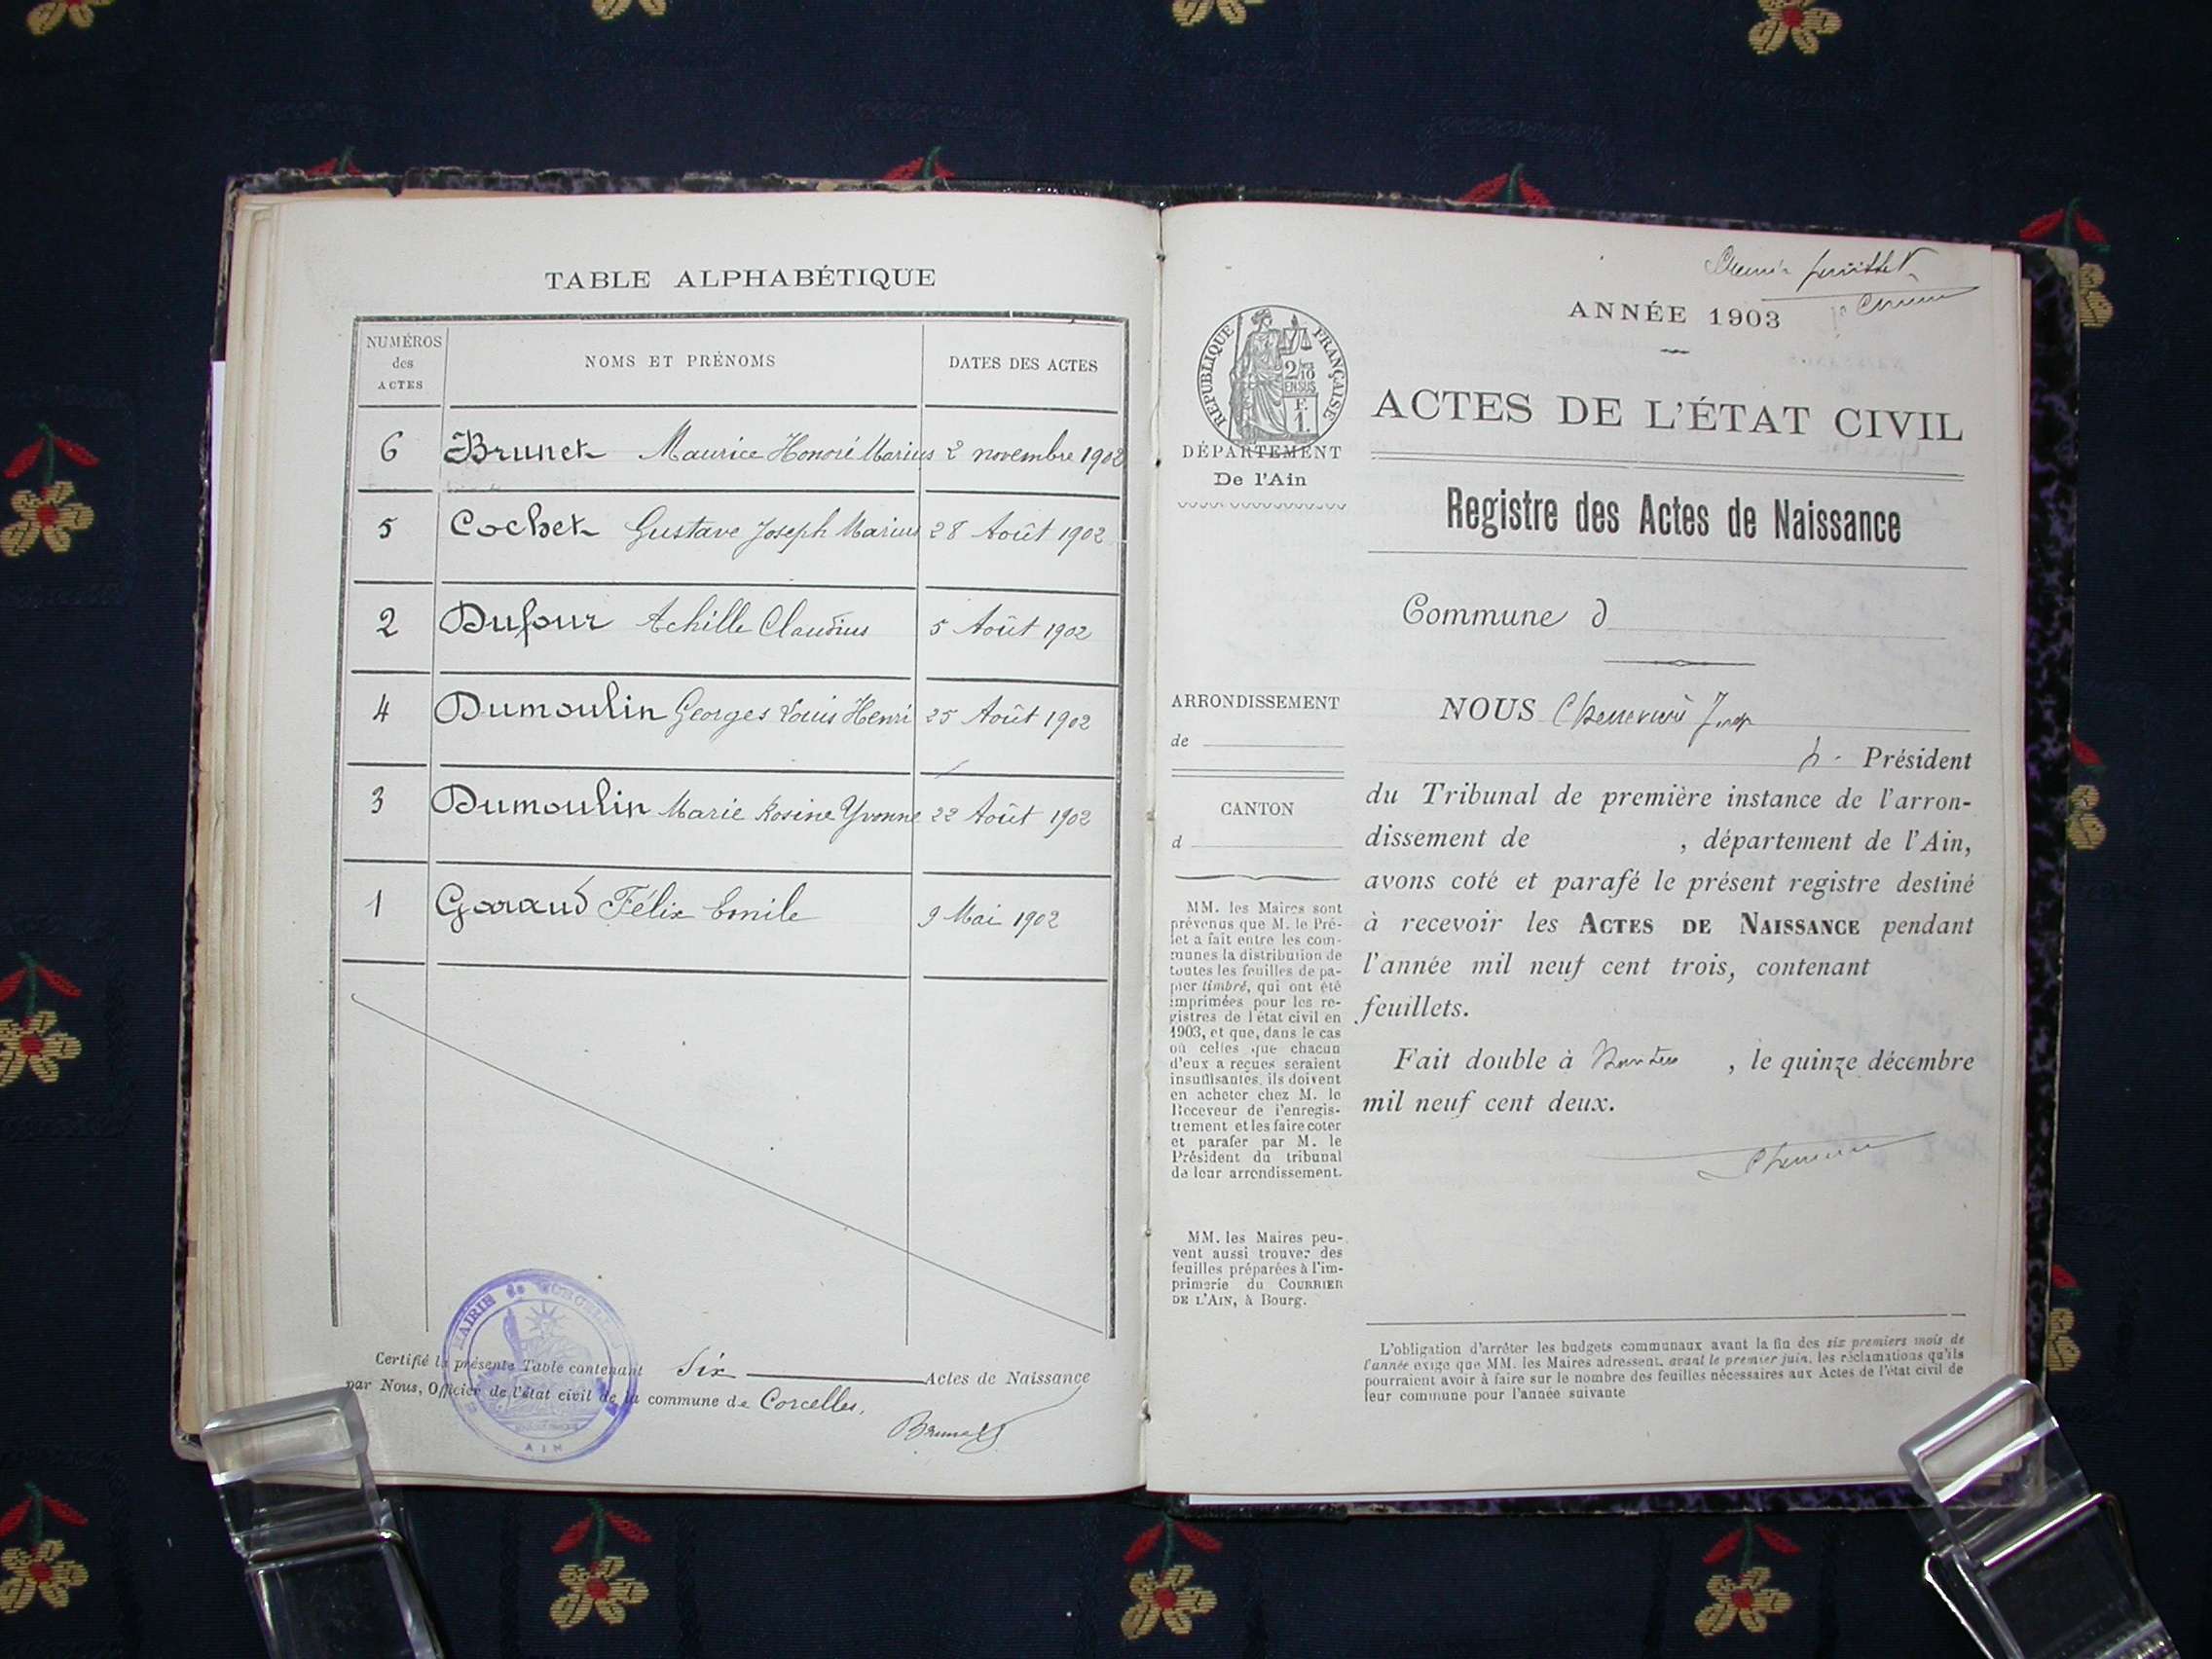 TABLE ALPHABÉTIQUE
NUMÉROS
des
ACTES
NOMS ET PRÉNOMS
DATES DES ACTES
6 Brunet Maurice Honoré Marius 2 novembre 1902
5 Cochet Gustave Joseph Marius 28 Août 1902
2 Dufour Achille Claudius 5 Août 1902
4 Dumoulin Georges Louis Henri 25 Août 1902
3 Dumoulin Marie Rosine Yvonne 22 Août 1902
1 Garaud Félix Emile 9 Mai 1902
Certifié la présente Table contenant Six Actes de Naissance
par Nous, Officier de l'état civil de la commune de Corcelles.
Brunet
MAIRIE de CORCELLES
AIN
feuillet
ANNÉE 1903
RÉPUBLIQUE FRANÇAISE
2/10
EN SUS
F.
1.
DÉPARTEMENT
De l'Ain
ACTES DE L'ÉTAT CIVIL
Registre des Actes de Naissance
Commune d
ARRONDISSEMENT
de
CANTON
d
MM. les Maires sont
prévenus que M. le Pré-
fet a fait entre les com-
munes la distribution de
toutes les feuilles de pa-
pier timbré, qui ont été
imprimées pour les re-
gistres de l'état civil en
1903, et que, dans le cas
où celles que chacun
d'eux a reçues seraient
insuffisantes, ils doivent
en acheter chez M. le
Receveur de l'enregis-
trement et les faire coter
et parafer par M. le
Président du tribunal
de leur arrondissement.
MM. les Maires peu-
vent aussi trouver des
feuilles préparées à l'im-
primerie du COURRIER
DE L'AIN, à Bourg.
NOUS
Président
du Tribunal de première instance de l'arron-
dissement de , département de l'Ain,
avons coté et parafé le présent registre destiné
à recevoir les ACTES DE NAISSANCE pendant
l'année mil neuf cent trois, contenant
feuillets.
Fait double à Nantua , le quinze décembre
mil neuf cent deux.
L'obligation d'arrêter les budgets communaux avant la fin des six premiers mois de
l'année exige que MM. les Maires adressent, avant le premier juin, les réclamations qu'ils
pourraient avoir à faire sur le nombre des feuilles nécessaires aux Actes de l'état civil de
leur commune pour l'année suivante